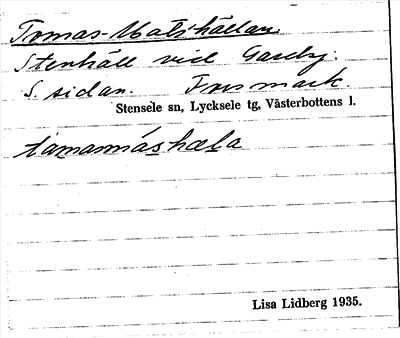 Tomas-Mats-hällan.
Stenhäll vid
S. sidan. Forsmark.
Stensele sn, Lycksele tg, Västerbottens l.
Lisa Lidberg 1935.